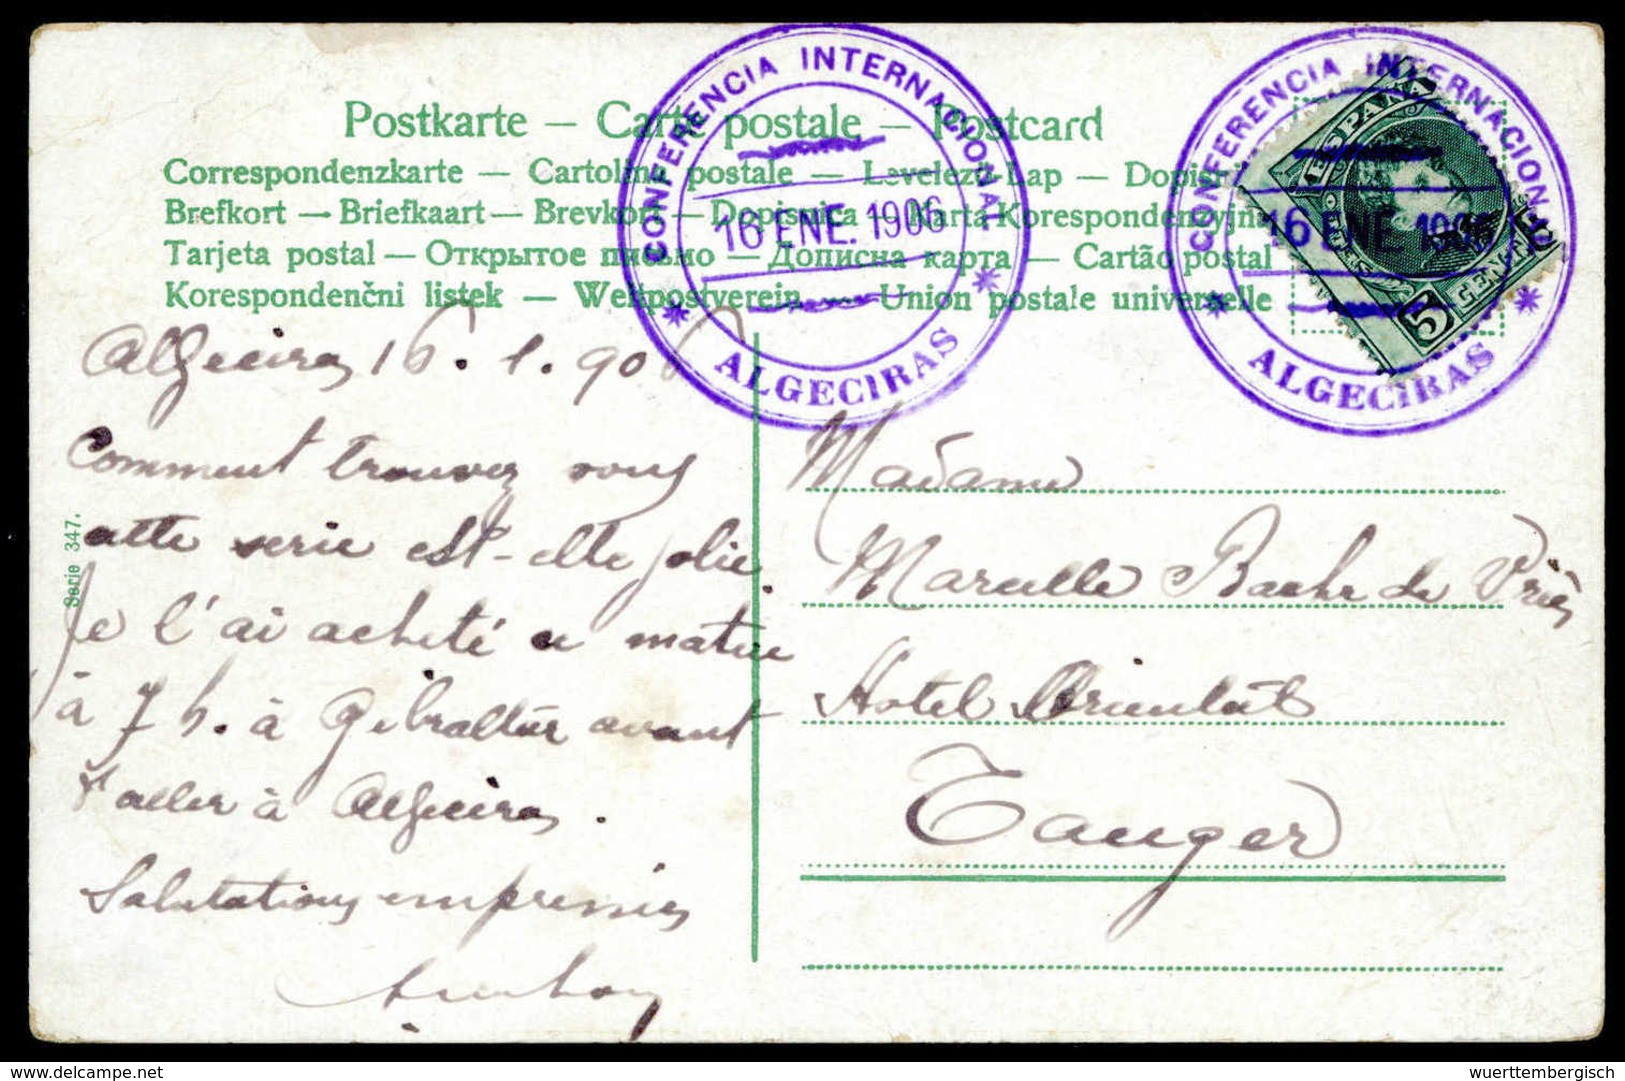 Postkarte – Carte postale – Postcard
Correspondenzkarte — Cartolina postale — Levelező-Lap — Dopisni
Brefkort — Briefkaart — Brevkort — Dopisnica — Karta Korespondencyjna
Tarjeta postal — Открытое письмо — Дописна карта — Cartão postal
Korespondenčni listek — Weltpostverein — Union postale universelle
CONFERENCIA INTERNACIONAL
16 ENE. 1906
* ALGECIRAS *
CONFERENCIA INTERNACIONAL
16 ENE. 1906
* ALGECIRAS *
ESPAÑA
5
Serie 347.
Algeciras 16.1.906
Comment trouvez vous
cette serie est-elle jolie.
Je l'ai acheté ce matin
à 7 h. à Gibraltar avant
d'aller à Algeciras.
Salutations empressées
Madame
Marcelle Bache de Vriès
Hotel Oriental
Tanger
wuerttembergisch